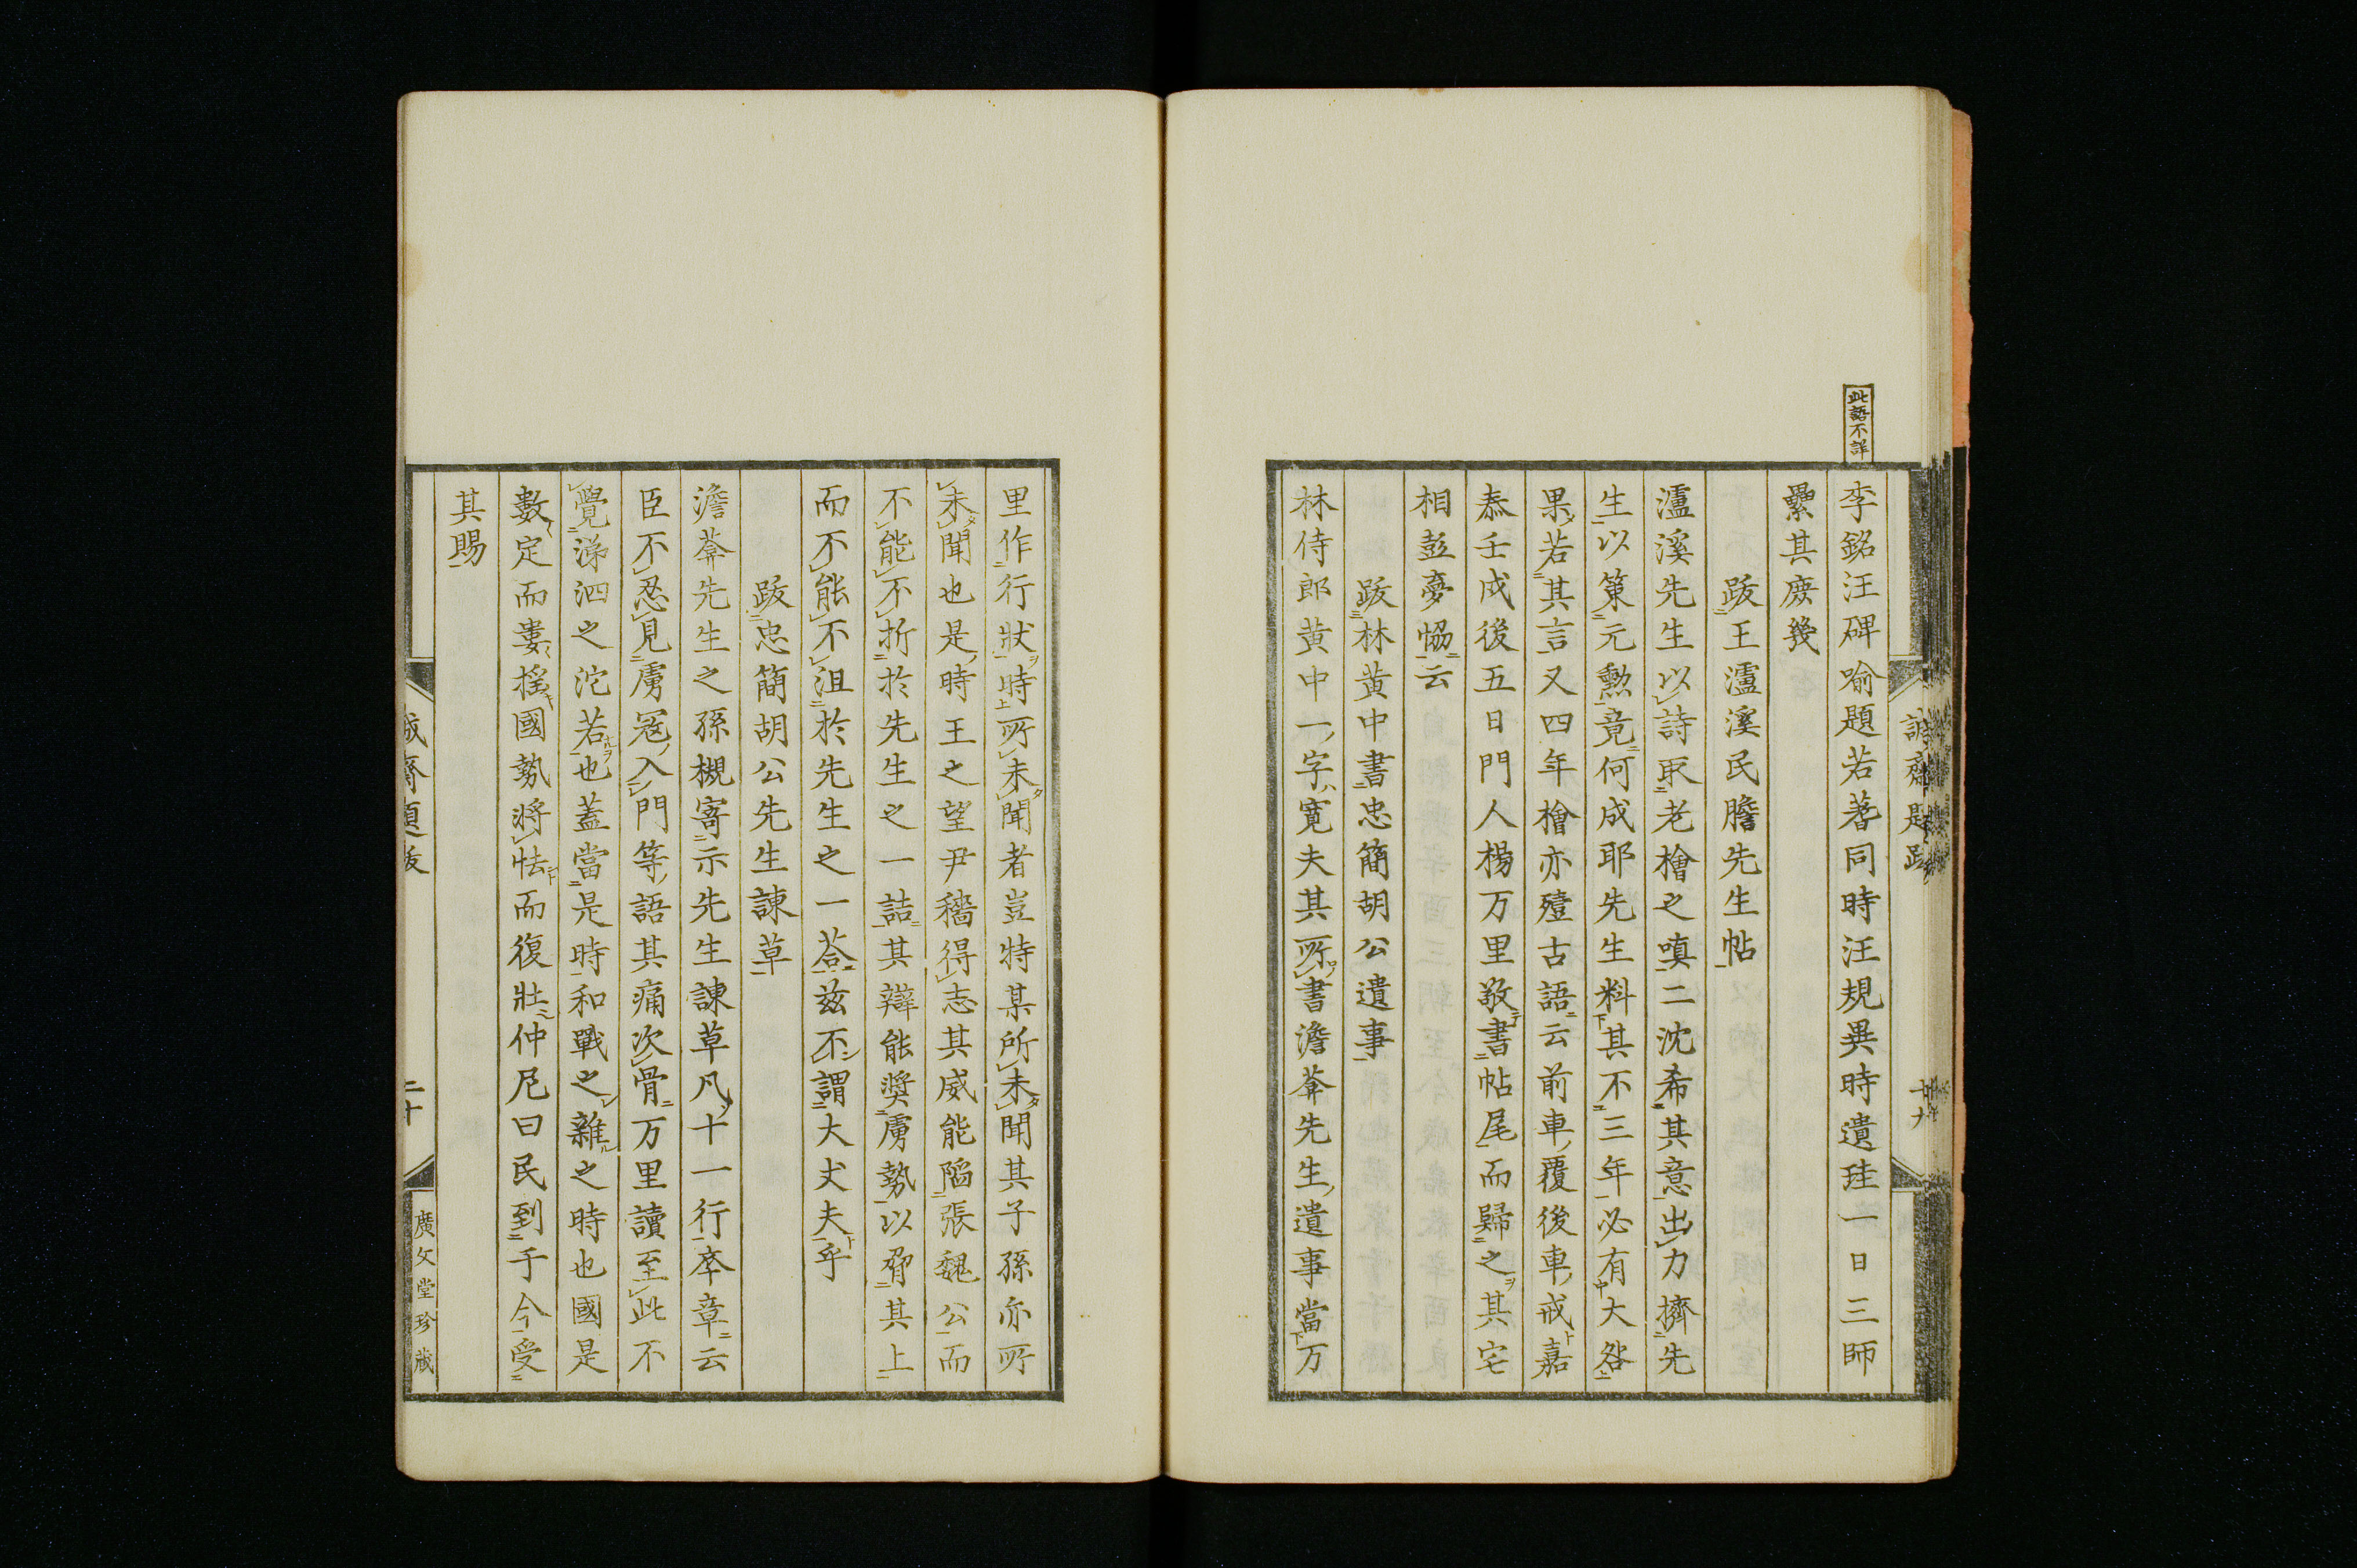 此語不詳
李銘汪碑喻題若蓍同時汪規異時遺珪一日三師
纍其庶幾
跋王瀘溪民瞻先生帖
瀘溪先生以詩取老檜之嗔二沈希其意出力擠先
生以策元勲竟何成耶先生料其不三年必有大咎
果若其言又四年檜亦殪古語云前車覆後車戒嘉
泰壬戌後五日門人楊万里敬書帖尾而歸之其宅
相彭夢協云
跋林黄中書忠簡胡公遺事
林侍郎黄中一字寛夫其所書澹菴先生遺事當万
里作行狀時所未聞者豈特某所未聞其子孫亦所
未聞也是時王之望尹穡得志其威能陷張魏公而
不能不折於先生之一詰其辯能奬虜勢以脅其上
而不能不沮於先生之一荅兹不謂大丈夫乎
跋忠簡胡公先生諌草
澹菴先生之孫槻寄示先生諌草凡十一行卒章云
臣不忍見虜冦入門等語其痛次骨万里讀至此不
覺涕泗之沱若也蓋當是時和戰之雜之時也國是
數定而婁揺國勢將怯而復壯仲尼曰民到于今受
其賜
誠齋題跋
二十
廣文堂珍蔵